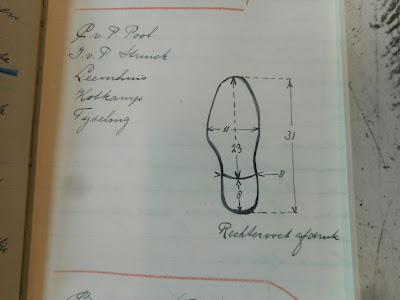 C. v. P. Pool
J. v. P. Struick
Leemhuis
Kotkamp
Tijseling
11
23
31
8
8
Rechtervoet afdruk